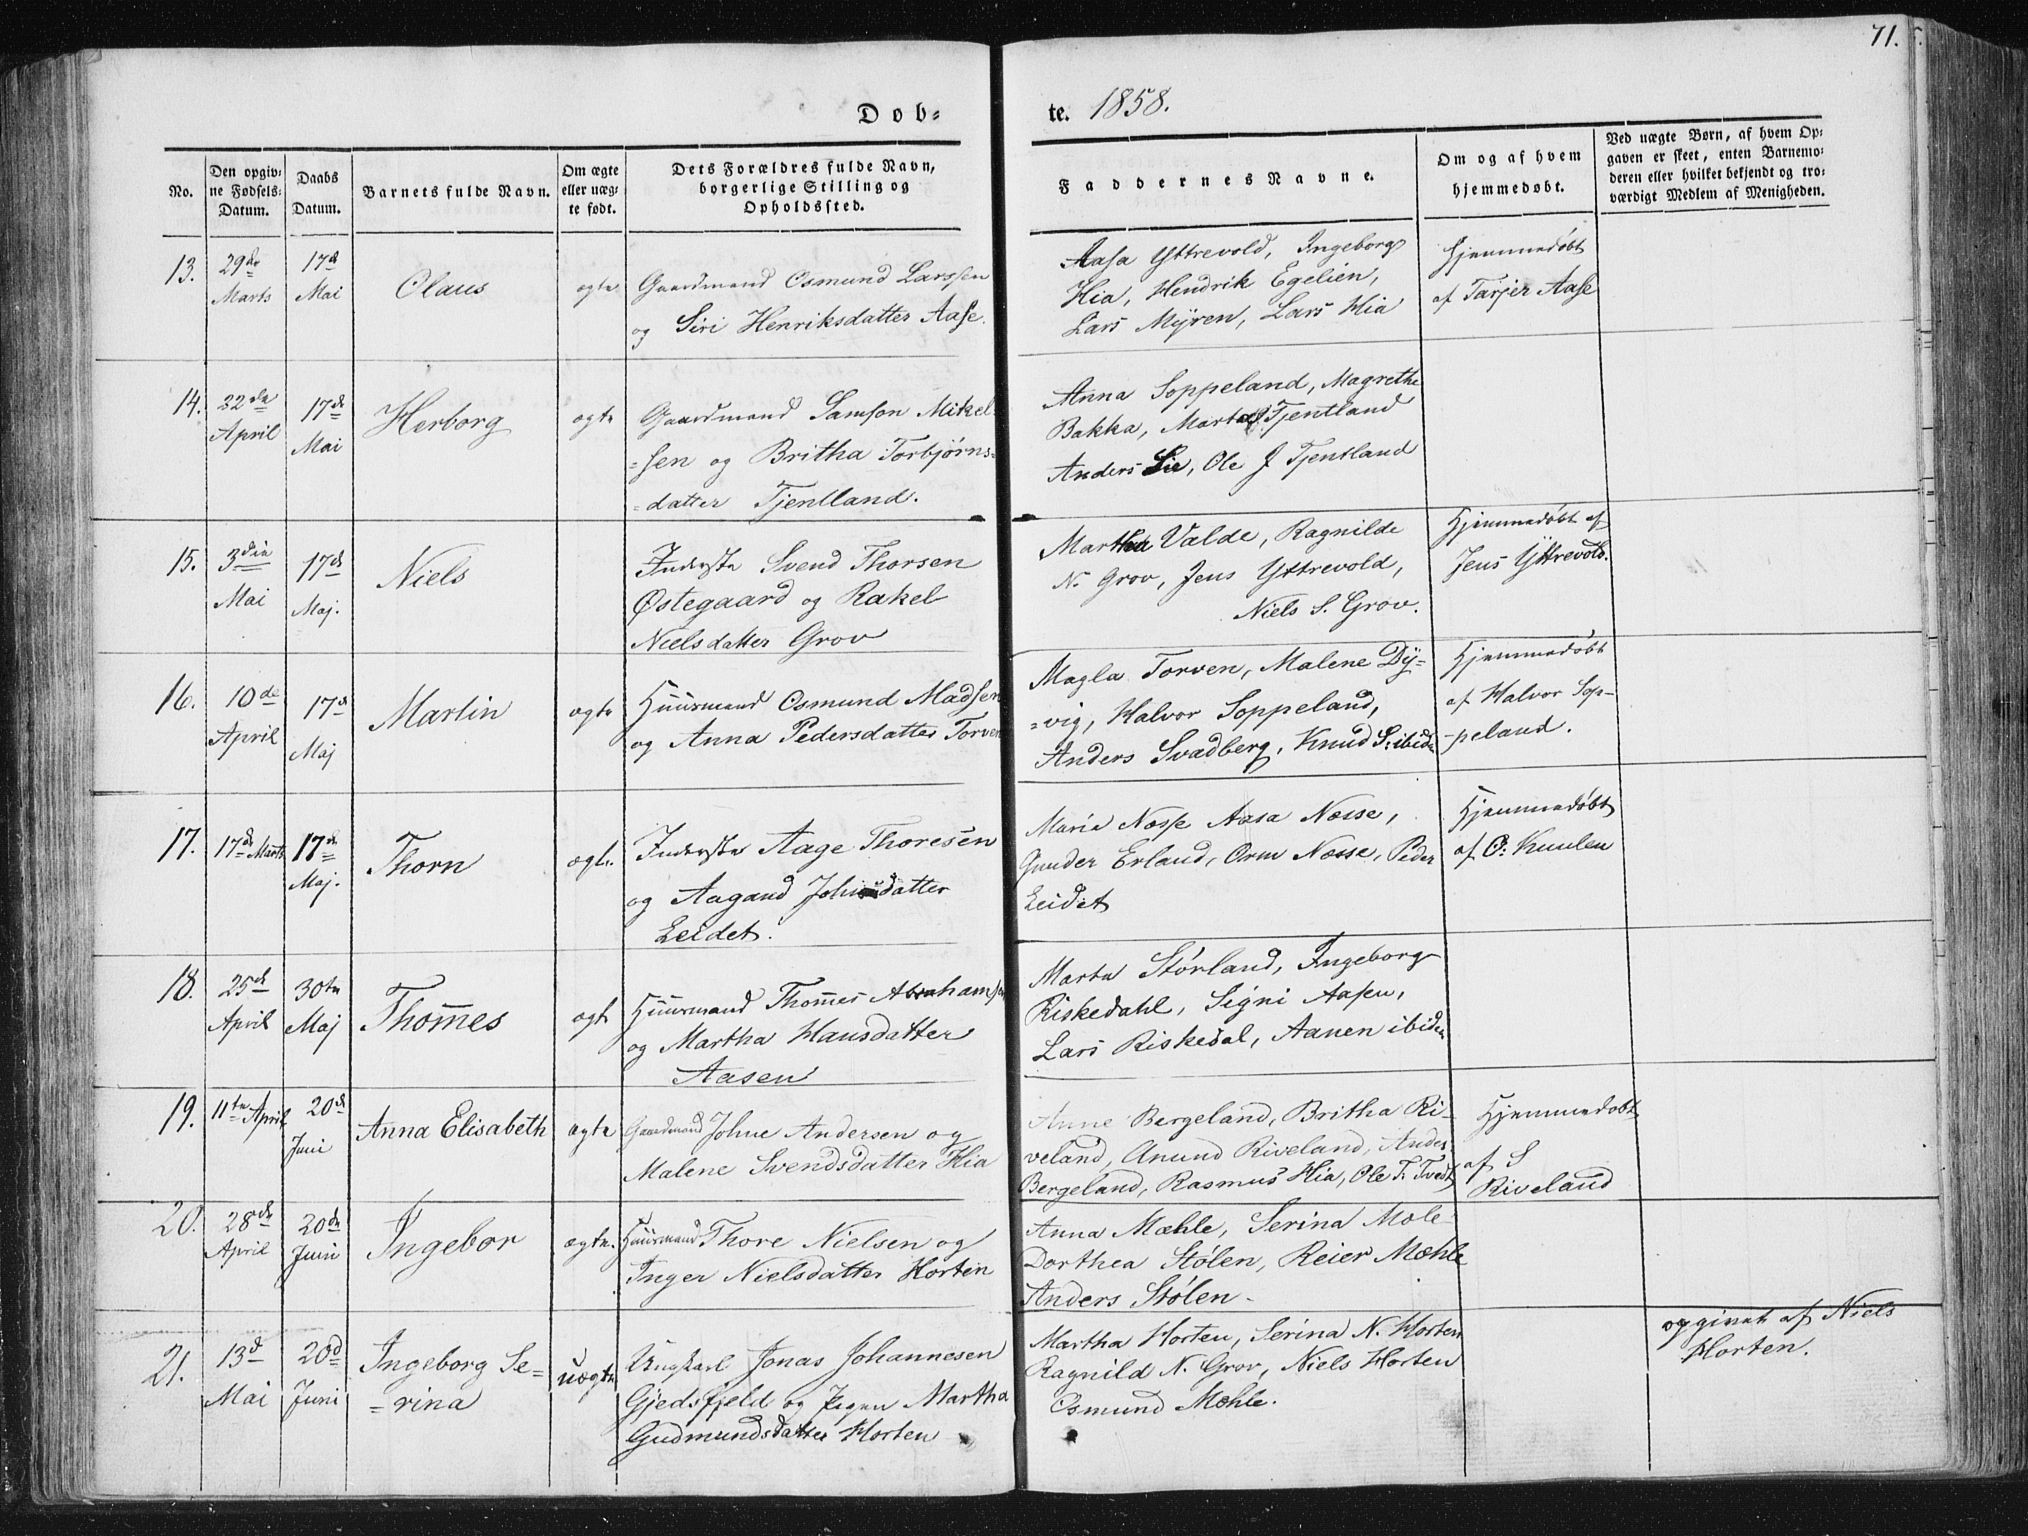 71.
Døb-
te. 1858.
No.
Den opgiv-
ne Fødsels-
Datum.
Daabs
Datum.
Barnets fulde Navn.
Om ægte
eller uæg-
te født.
Dets Forældres fulde Navn,
borgerlige Stilling og
Opholdssted.
Faddernes Navne.
Om og af hvem
hjemmedøbt.
Ved uægte Børn, af hvem Op-
gaven er skeet, enten Barnemo-
deren eller hvilket bekjendt og tro-
værdigt Medlem af Menigheden.
13.
29de
Marts
17d
Mai
Olaus
ægte
Gaardmand Osmund Larssen
og Siri Henriksdatter Aase.
Aasa Yttrevold, Ingeborg
Hia, Hendrik Egelien,
Lars Myren, Lars Hia
Hjemmedøbt
af Tarjer Aase
14.
22de
April
17de
Mai
Herborg
ægte
Gaardmand Samson Mikel-
=sen og Britha Torbjørns=
=datter Tjentland.
Anna Soppeland, Magrethe
Bakka, Marta Tjentland
Anders Lie, Ole J Tjentland
15.
3die
Mai
17de
Maj.
Niels
Inderste Svend Thorsen
Østegaard og Rakel
Nielsdatter Grov
Martha Valde, Ragnilde
N. Grov, Jens Yttrevold,
Niels S. Grov.
Hjemmedøbt af
Jens Yttrevold.
16.
10de
April
17de
Maj
Martin
ægte
Huusmand Osmund Madsen
og Anna Pedersdatter Torven
Magla Torven, Malene Dy=
=vig, Halvor Soppeland,
Anders Svadberg, Knud S: ibide
Hjemmedøbt
af Halvor Sop-
-peland.
17.
17de Marts
17de
Maj.
Thorn
ægte.
Inderste Aage Thoresen
og Aagaud Johnsdatter
Eeidet.
Marie Nesse Aasa Nesse,
Gunder Erland, Orm Nesse, Peder
Eeidet
Hjemmedøbt
af O: Kuulen
18.
25de
April
30te
Maj
Thomes
ægte
Huusmand Thomes Abrahamsen
og Martha Hansdatter
Aasen
Marta Størland, Ingeborg
Riskedahl, Signi Aasen,
Lars Riskedal, Aanen ibiden
19.
11te April
20de
Juni
Anna Elisabeth
ægte
Gaardmand Johne Andersen og
Malene Svendsdatter Hia
Anne Bergeland, Britha Ri-
veland, Anund Riveland, Anders
Bergeland, Rasmus Hia, Ole T. Tvedt
Hjemmedøbt
af S
Riveland
20.
28de
April
20de
Juni
Ingebor
ægte.
Huusmand Thore Nielsen og
Inger Nielsdatter Horten
Anna Mæhle, Serina Mæle
Dorthea Stølen, Reier Mæhle
Anders Stølen-
21.
13d
Mai
20d
Juni
Ingeborg Se-
=rina
uægte
Ungkarl Jonas Johannesen
Gjedsfjeld og Pigen Martha
Gudmundsdatter Horten
Martha Horten, Serina N. Horten
Ragnild N. Grov, Niels Horten
Osmund Mæhle.
opgivet af Niels
Horten.